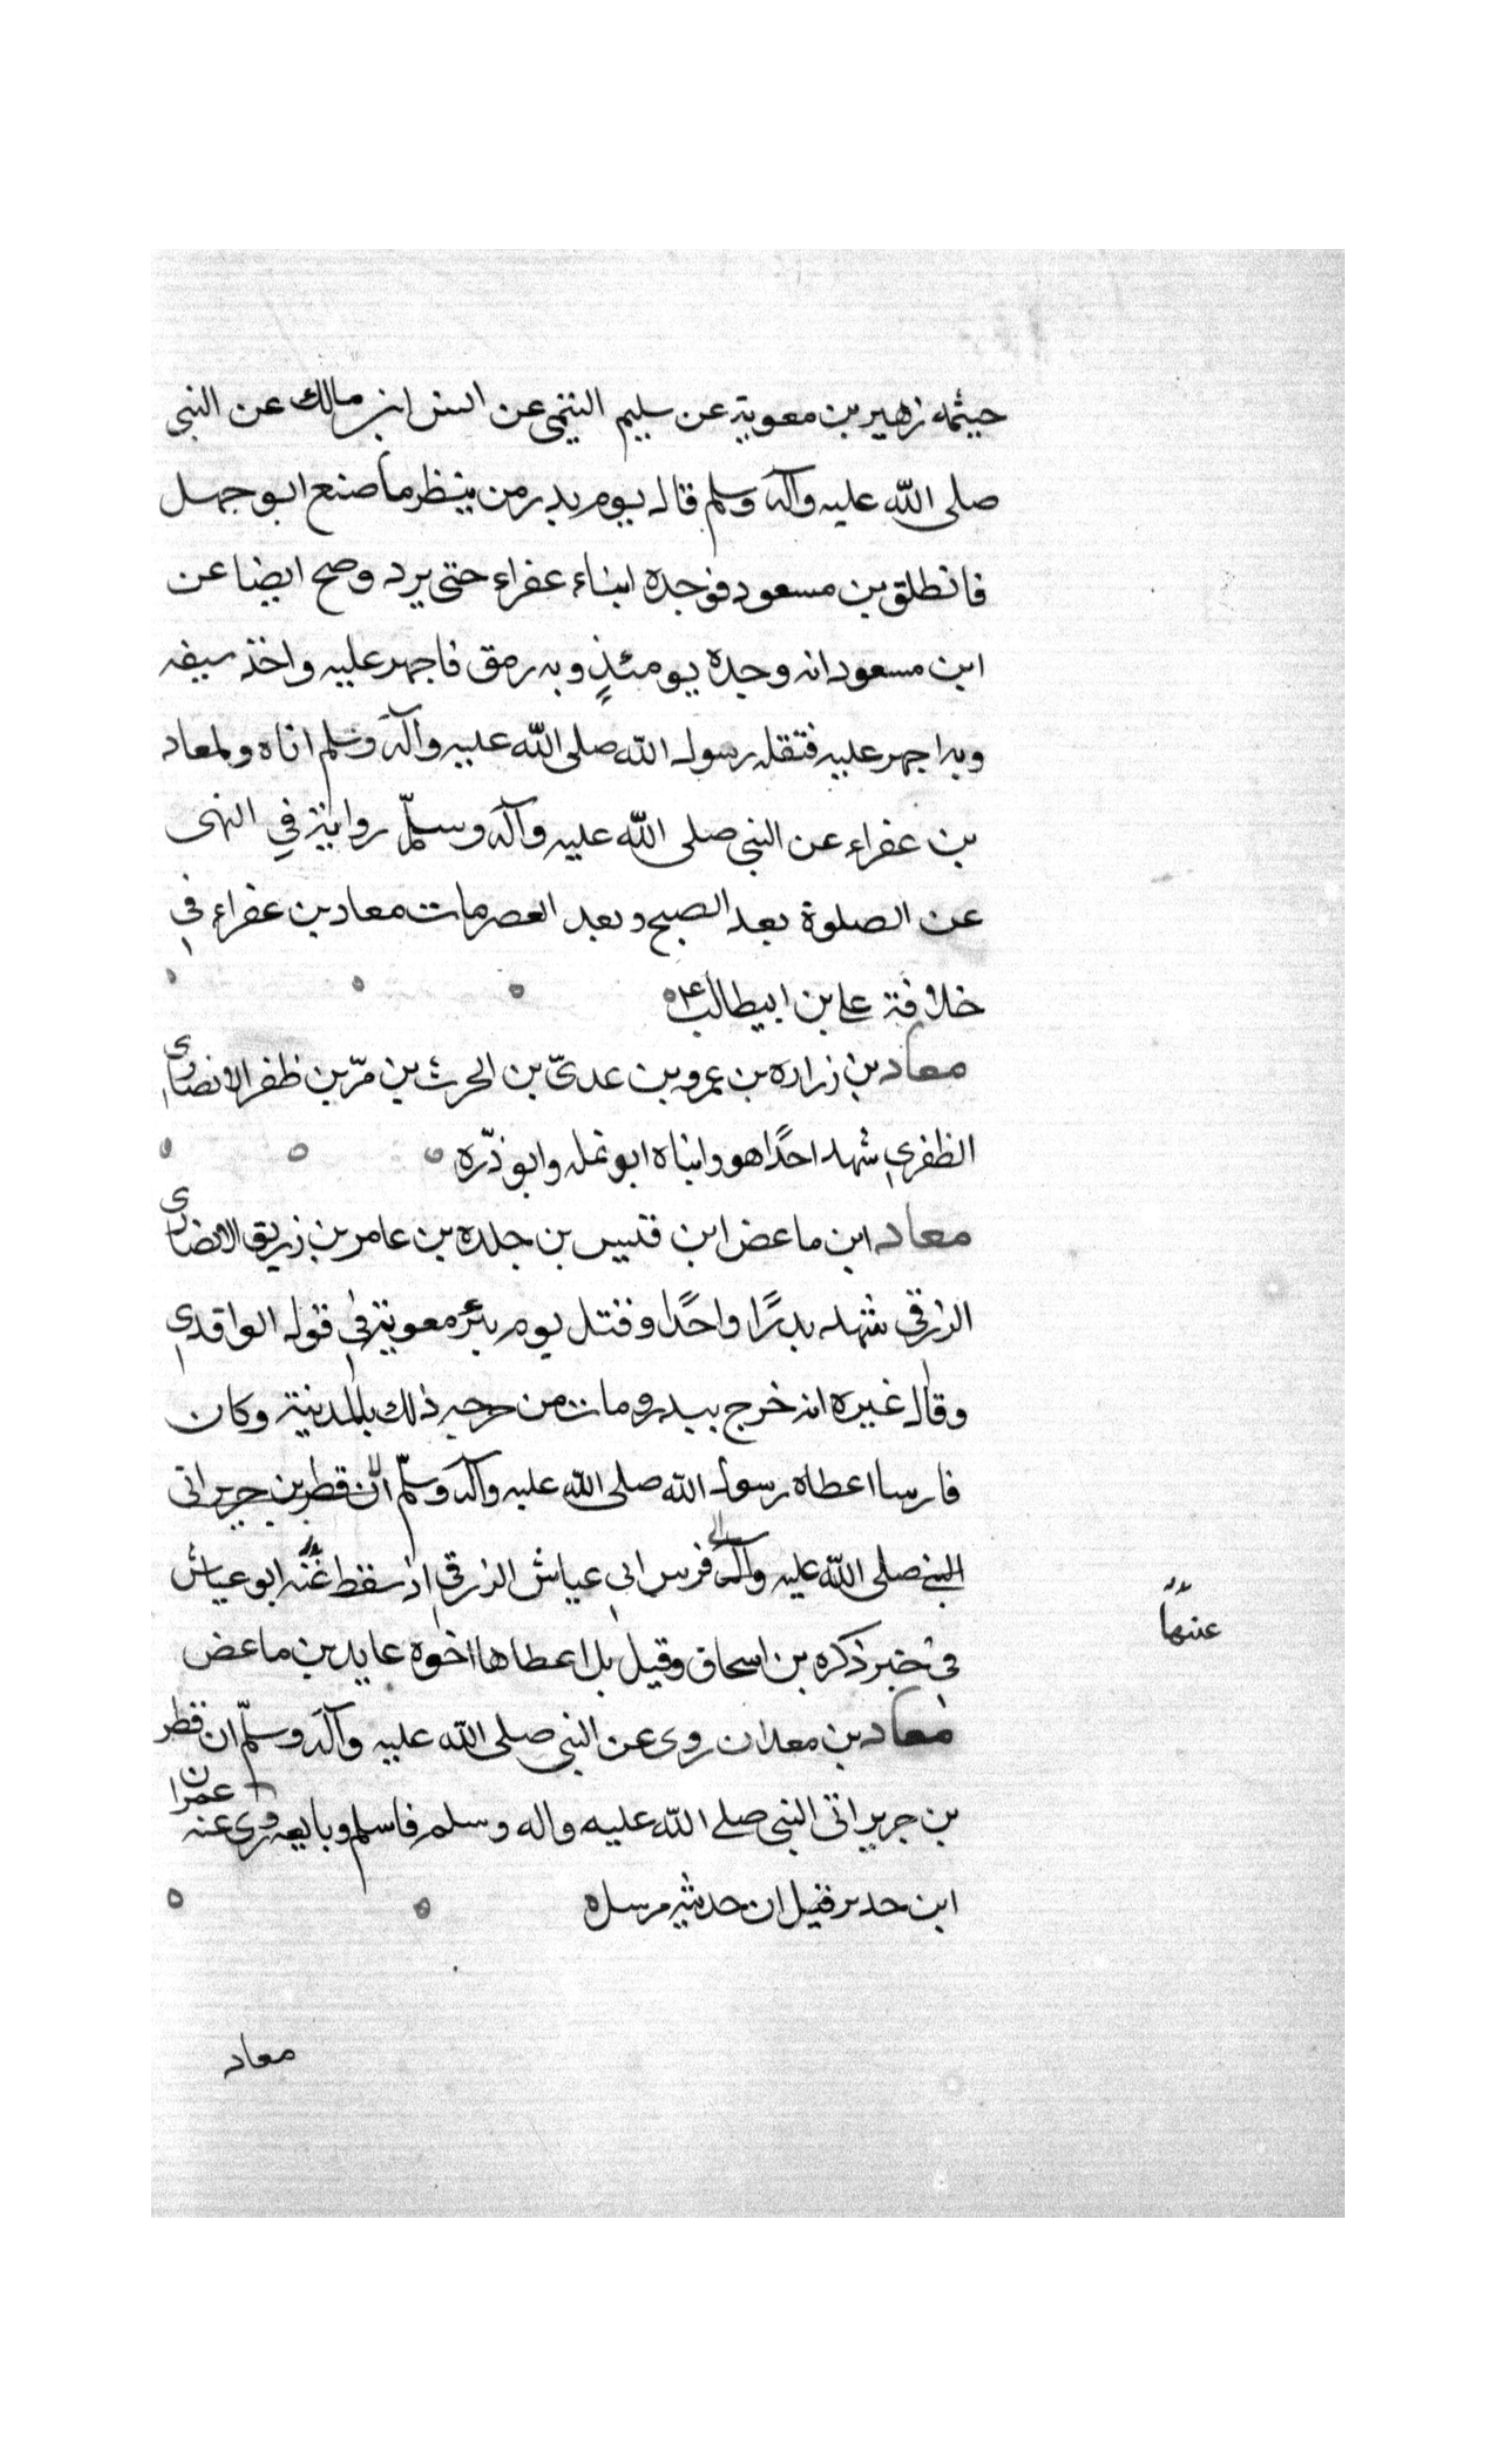 حيثمه زهير بن معوية عن سليم التيمي عن انس ابن مالك عن النبي
صلى الله عليه وآله وسلم قال يوم بدر من ينظر ما صنع ابو جهل
فانطلق بن مسعود فوجده ابناء عفراء حتى برد وصح ايضا عن
ابن مسعود انه وجده يومئذٍ وبه رمق فاجهز عليه واخذ سيفه
وبه اجهز عليه فنفله رسول الله صلى الله عليه وآله وسلم اناه ولمعاد
بن عفراء عن النبي صلى الله عليه وآله وسلّم رواية في النهى
عن الصلوة بعد الصبح وبعد العصر مات معاد بن عفراء في
خلافة على بن ابيطالب ع
معاد بن زراره بن عمرو بن عدىّ بن الحرث بن مرّ بن ظفر الانصارى
الظفري شهد احدًا هو وابناه ابو نمله وابو ذرّه
معاد ابن ماعض ابن قيس بن جلده بن عامر بن زريق الانصارى
الزرقي شهد بدرًا واحدًا وقتل يوم بئر معوية في قول الواقدي
وقال غيره انه خرج ببدر ومات من جرحه ذلك بالمدينة وكان
فارسا اعطاه رسول الله صلى الله عليه وآله وسلّم ان قطر بن جرير اتى
النبي صلى الله عليه وآله فرس ابي عياش الزرقي اذ سقط عنه ابو عياش
عنها
في خبر ذكره بن اسحاق وقيل بل اعطاها اخوه عايد بن ماعض
معاد بن معدان روى عن النبي صلى الله عليه وآله وسلّم ان قطر
بن جرير اتى النبي صلى الله عليه واله وسلم فاسلم وبايعه وروى عنه عمران
ابن حدير قيل ان حديثه مرسل
معاد